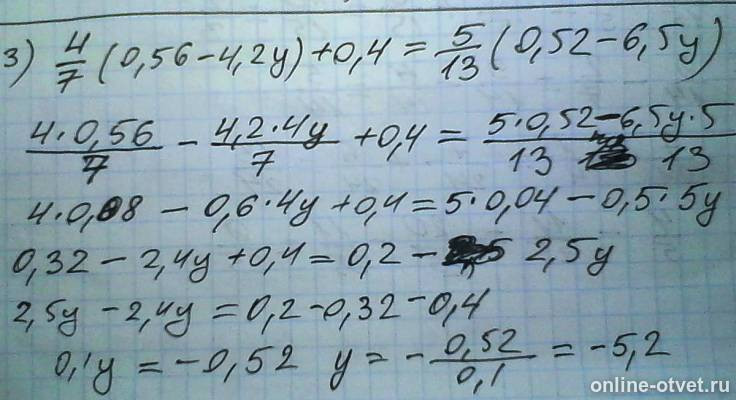 3) 4/7 (0,56 - 4,2y) + 0,4 = 5/13 (0,52 - 6,5y)
4·0,56/7 - 4,2·4y/7 + 0,4 = 5·0,52/13 - 6,5y·5/13
4·0,08 - 0,6·4y + 0,4 = 5·0,04 - 0,5·5y
0,32 - 2,4y + 0,4 = 0,2 - 2,5y
2,5y - 2,4y = 0,2 - 0,32 - 0,4
0,1y = -0,52 y = - 0,52/0,1 = -5,2
online-otvet.ru